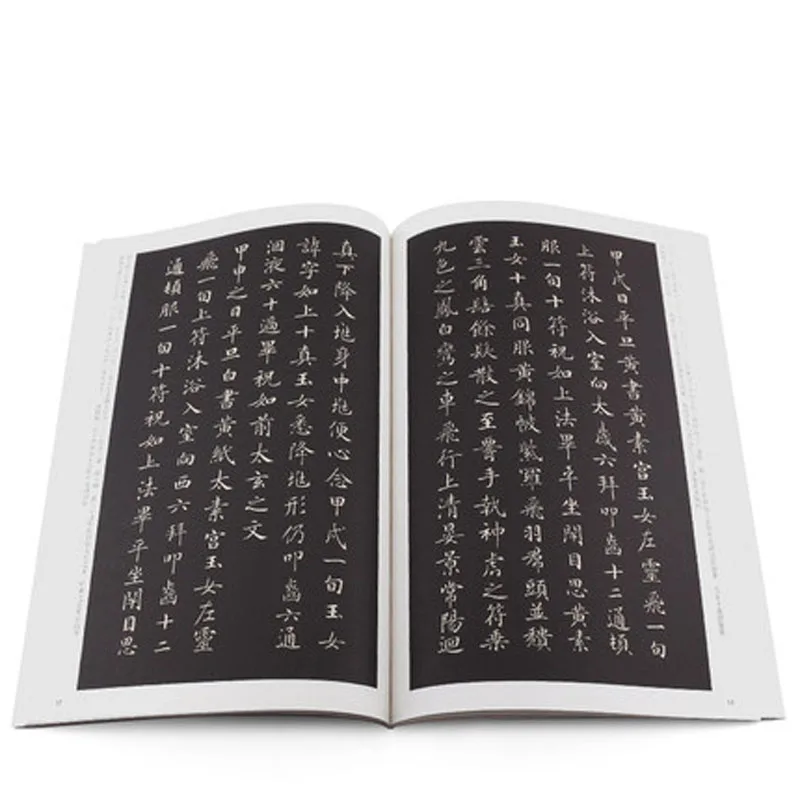 甲戌日平旦黃書黃素宮玉女左靈飛一旬
上符沐浴入室向太歲六拜叩齒十二通頓
服一旬十符祝如上法畢平坐閉目思黃素
玉女十真同服黃錦帔紫羅飛羽帬頭並頹
雲三角髻餘髮散之至腰手執神虎之符乘
九色之鳳白鸞之車飛行上清晏景常陽迴
真下降入兆身中兆便心念甲戌一旬玉女
諱字如上十真玉女悉降兆形仍叩齒六通
咽液六十過畢祝如前太玄之文
甲申之日平旦白書黃紙太素宮玉女左靈
飛一旬上符沐浴入室向西六拜叩齒十二
通頓服一旬十符祝如上法畢平坐閉目思